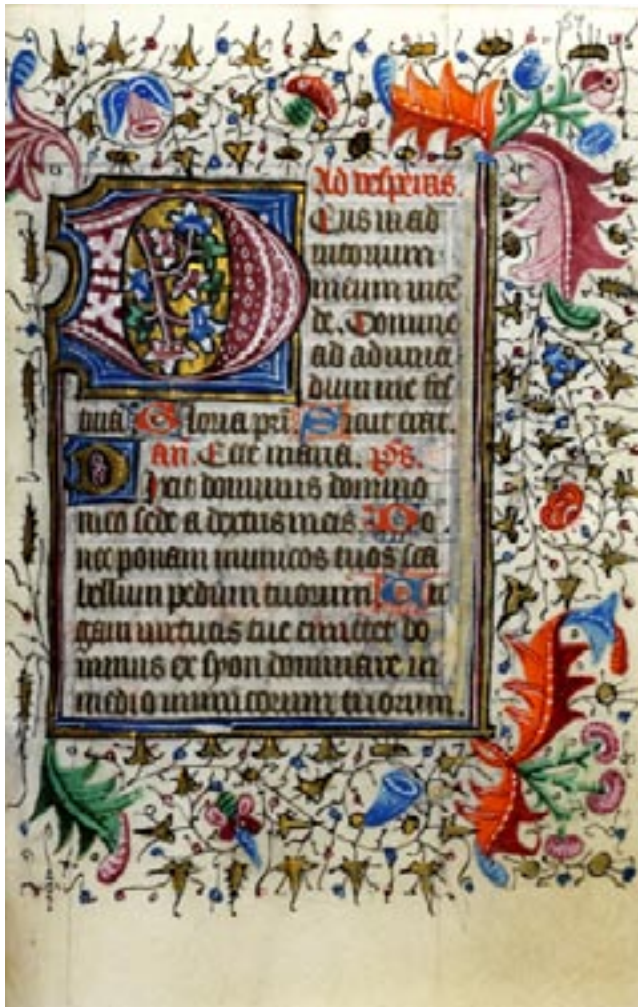 Ad vesperas
Deus in ad
iutorium
meum inte
de. Domine
ad adiuva
dum me fes
tina. Gloria pri. Sicut erat.
an. Ecce maria. ps.
Dixit dominus domino
meo sede a dextris meis Do
nec ponam inimicos tuos sca
bellum pedum tuorum. Uir
gam virtutis tue emittet do
minus ex syon dominare in
medio inimicorum tuorum.